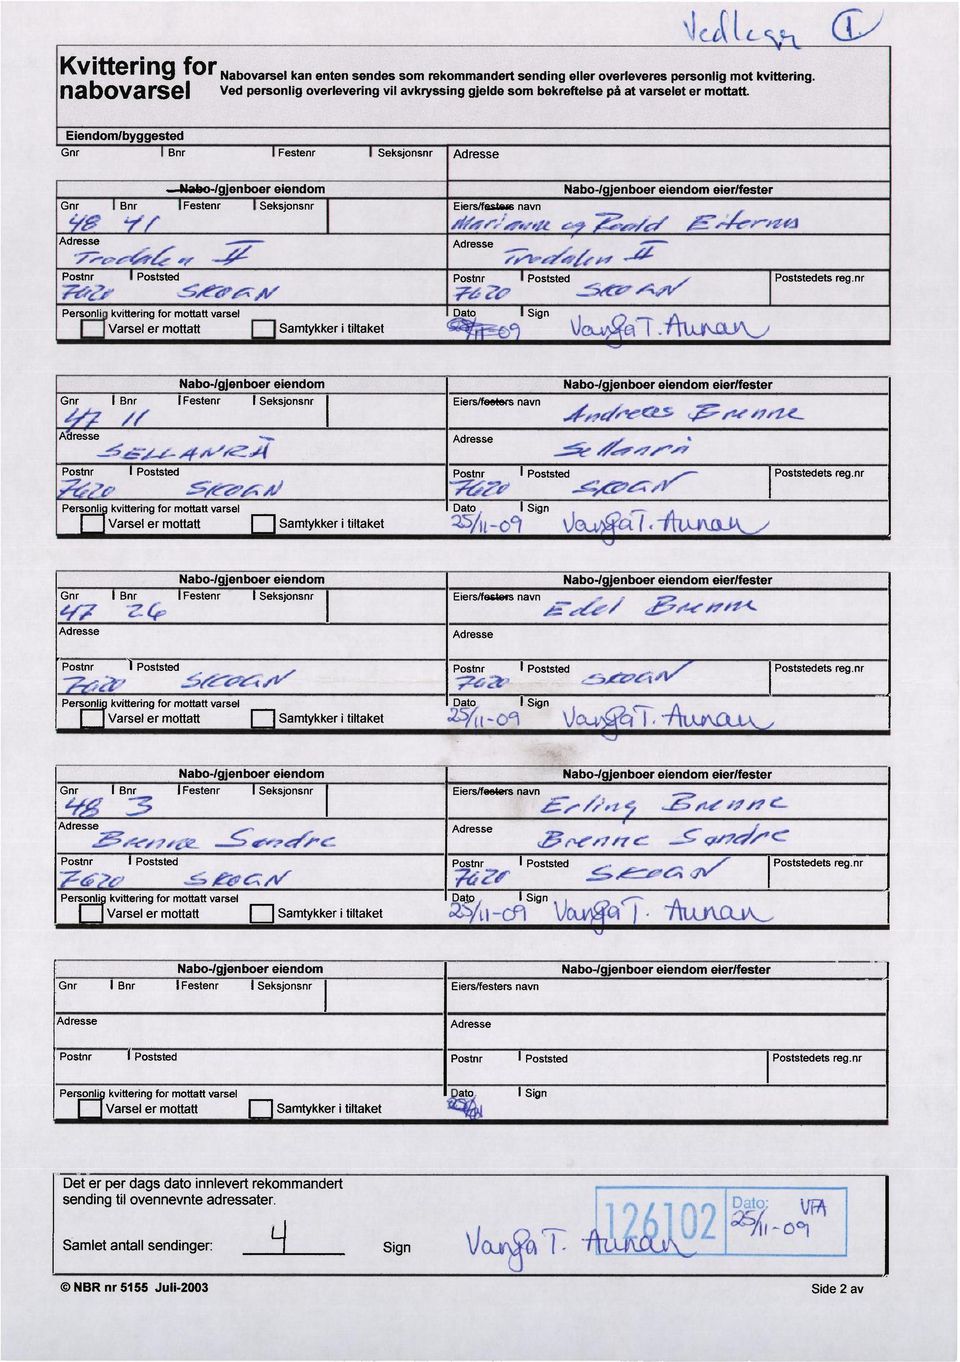 Vedlegg 1
Kvittering for nabovarsel
Nabovarsel kan enten sendes som rekommandert sending eller overleveres personlig mot kvittering.
Ved personlig overlevering vil avkryssing gjelde som bekreftelse på at varselet er mottatt.
Eiendom/byggested
Gnr Bnr Festenr Seksjonsnr Adresse
Nabo-/gjenboer eiendom Nabo-/gjenboer eiendom eier/fester
Gnr Bnr Festenr Seksjonsnr Eiers/festers navn
48 41 Marianne og Roald Eiternes
Adresse Adresse
Trodalen II Trodalen II
Postnr Poststed Postnr Poststed Poststedets reg.nr
7620 SKOGN 7620 SKOGN
Personlig kvittering for mottatt varsel Dato Sign
Varsel er mottatt Samtykker i tiltaket 11-09 Vanja T. Aunan
Nabo-/gjenboer eiendom Nabo-/gjenboer eiendom eier/fester
Gnr Bnr Festenr Seksjonsnr Eiers/festers navn
47 11 Andreas Brenne
Adresse Adresse
SELLANRÅ Sellanrå
Postnr Poststed Postnr Poststed Poststedets reg.nr
7620 SKOGN 7620 SKOGN
Personlig kvittering for mottatt varsel Dato Sign
Varsel er mottatt Samtykker i tiltaket 25/11-09 Vanja T. Aunan
Nabo-/gjenboer eiendom Nabo-/gjenboer eiendom eier/fester
Gnr Bnr Festenr Seksjonsnr Eiers/festers navn
47 26 Edel Brenne
Adresse Adresse
Postnr Poststed Postnr Poststed Poststedets reg.nr
7620 SKOGN 7620 SKOGN
Personlig kvittering for mottatt varsel Dato Sign
Varsel er mottatt Samtykker i tiltaket 25/11-09 Vanja T. Aunan
Nabo-/gjenboer eiendom Nabo-/gjenboer eiendom eier/fester
Gnr Bnr Festenr Seksjonsnr Eiers/festers navn
48 3 Erling Brenne
Adresse Adresse
Brenne Søndre Brenne Søndre
Postnr Poststed Postnr Poststed Poststedets reg.nr
7620 SKOGN 7620 SKOGN
Personlig kvittering for mottatt varsel Dato Sign
Varsel er mottatt Samtykker i tiltaket 25/11-09 Vanja T. Aunan
Nabo-/gjenboer eiendom Nabo-/gjenboer eiendom eier/fester
Gnr Bnr Festenr Seksjonsnr Eiers/festers navn
Adresse Adresse
Postnr Poststed Postnr Poststed Poststedets reg.nr
Personlig kvittering for mottatt varsel Dato Sign
Varsel er mottatt Samtykker i tiltaket
Det er per dags dato innlevert rekommandert
sending til ovennevnte adressater.
126102 Dato: 25/11-09 VFA
Samlet antall sendinger: 4 Sign Vanja T. Aunan
© NBR nr 5155 Juli-2003 Side 2 av